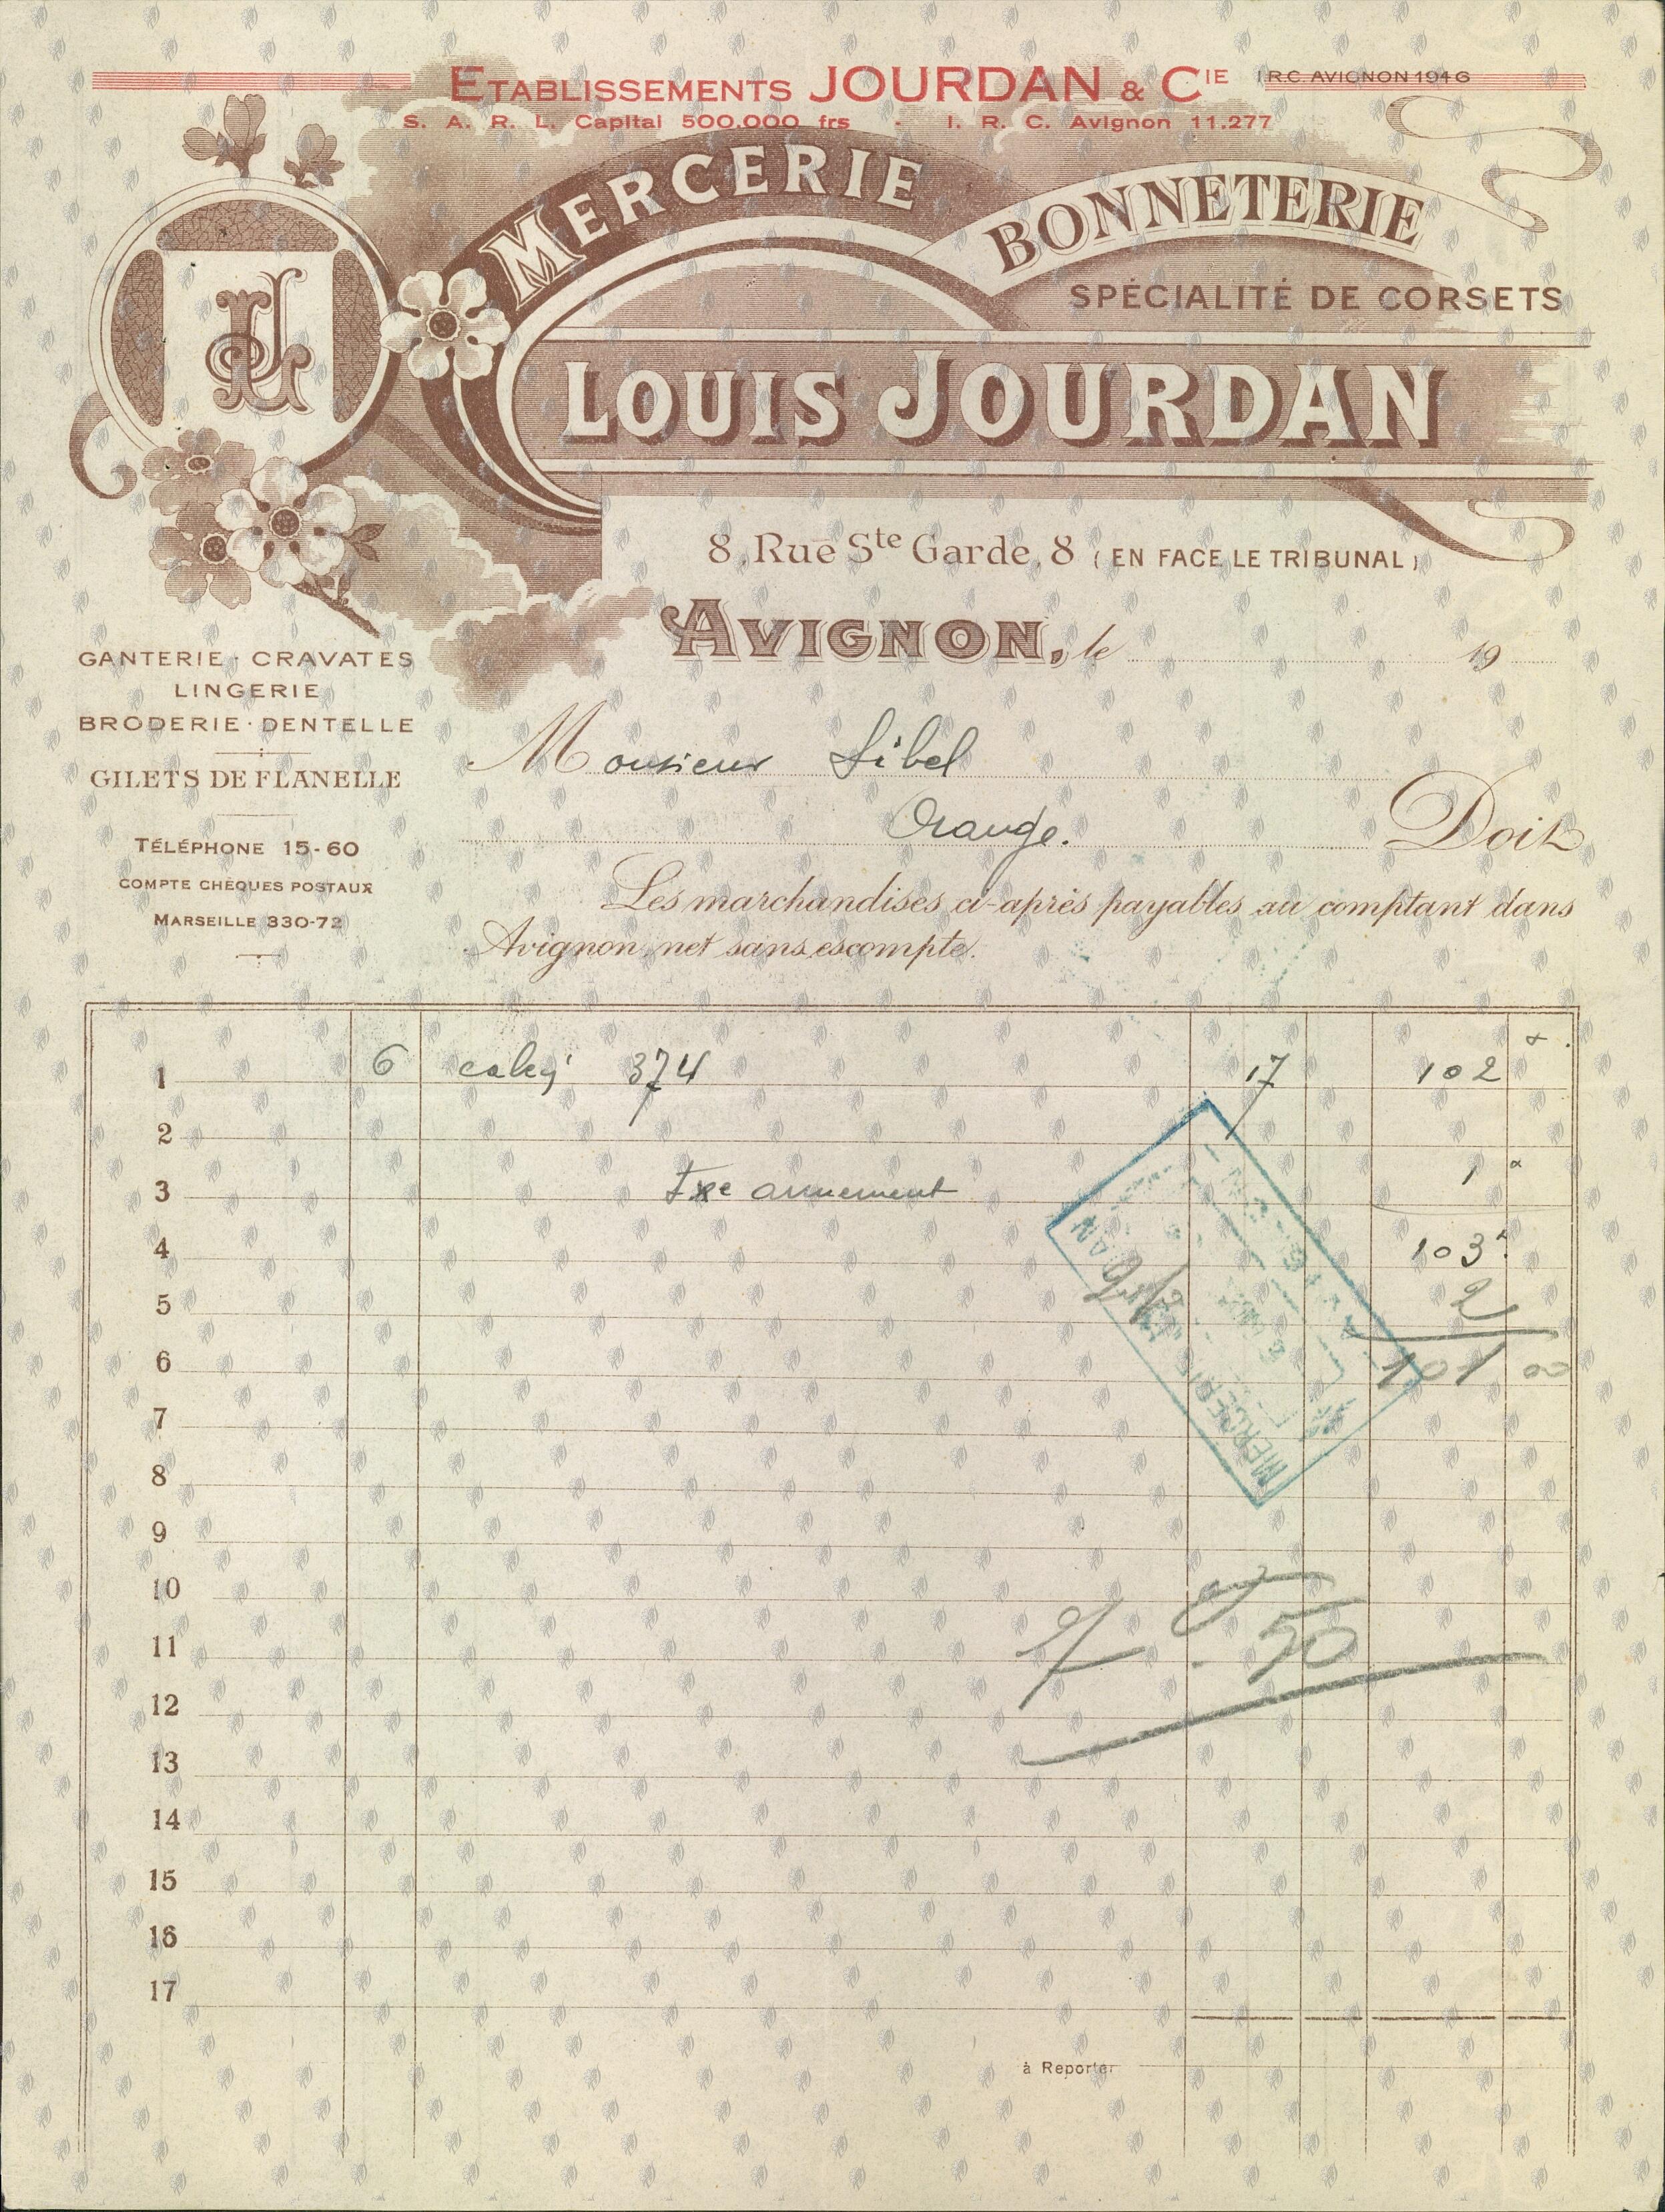 ETABLISSEMENTS JOURDAN & CIE
I R.C. AVIGNON 1946
S. A. R. L. Capital 500.000 frs - I. R. C. Avignon 11.277
MERCERIE
BONNETERIE
SPÉCIALITÉ DE CORSETS
LJ
LOUIS JOURDAN
8, Rue Ste Garde, 8 (EN FACE LE TRIBUNAL)
AVIGNON, le 19
GANTERIE · CRAVATES
LINGERIE
BRODERIE · DENTELLE
GILETS DE FLANELLE
TÉLÉPHONE 15-60
COMPTE CHÈQUES POSTAUX
MARSEILLE 330-72
Monsieur Sibel
Orange.
Doit
Les marchandises ci-après payables au comptant dans
Avignon, net sans escompte.
1 6 374 17 102
2
3 Txe armement 1
4 103
5 2
6 101 00
7
8
9
10
11 50
12
13
14
15
16
17
à Reporter
MERCERIE